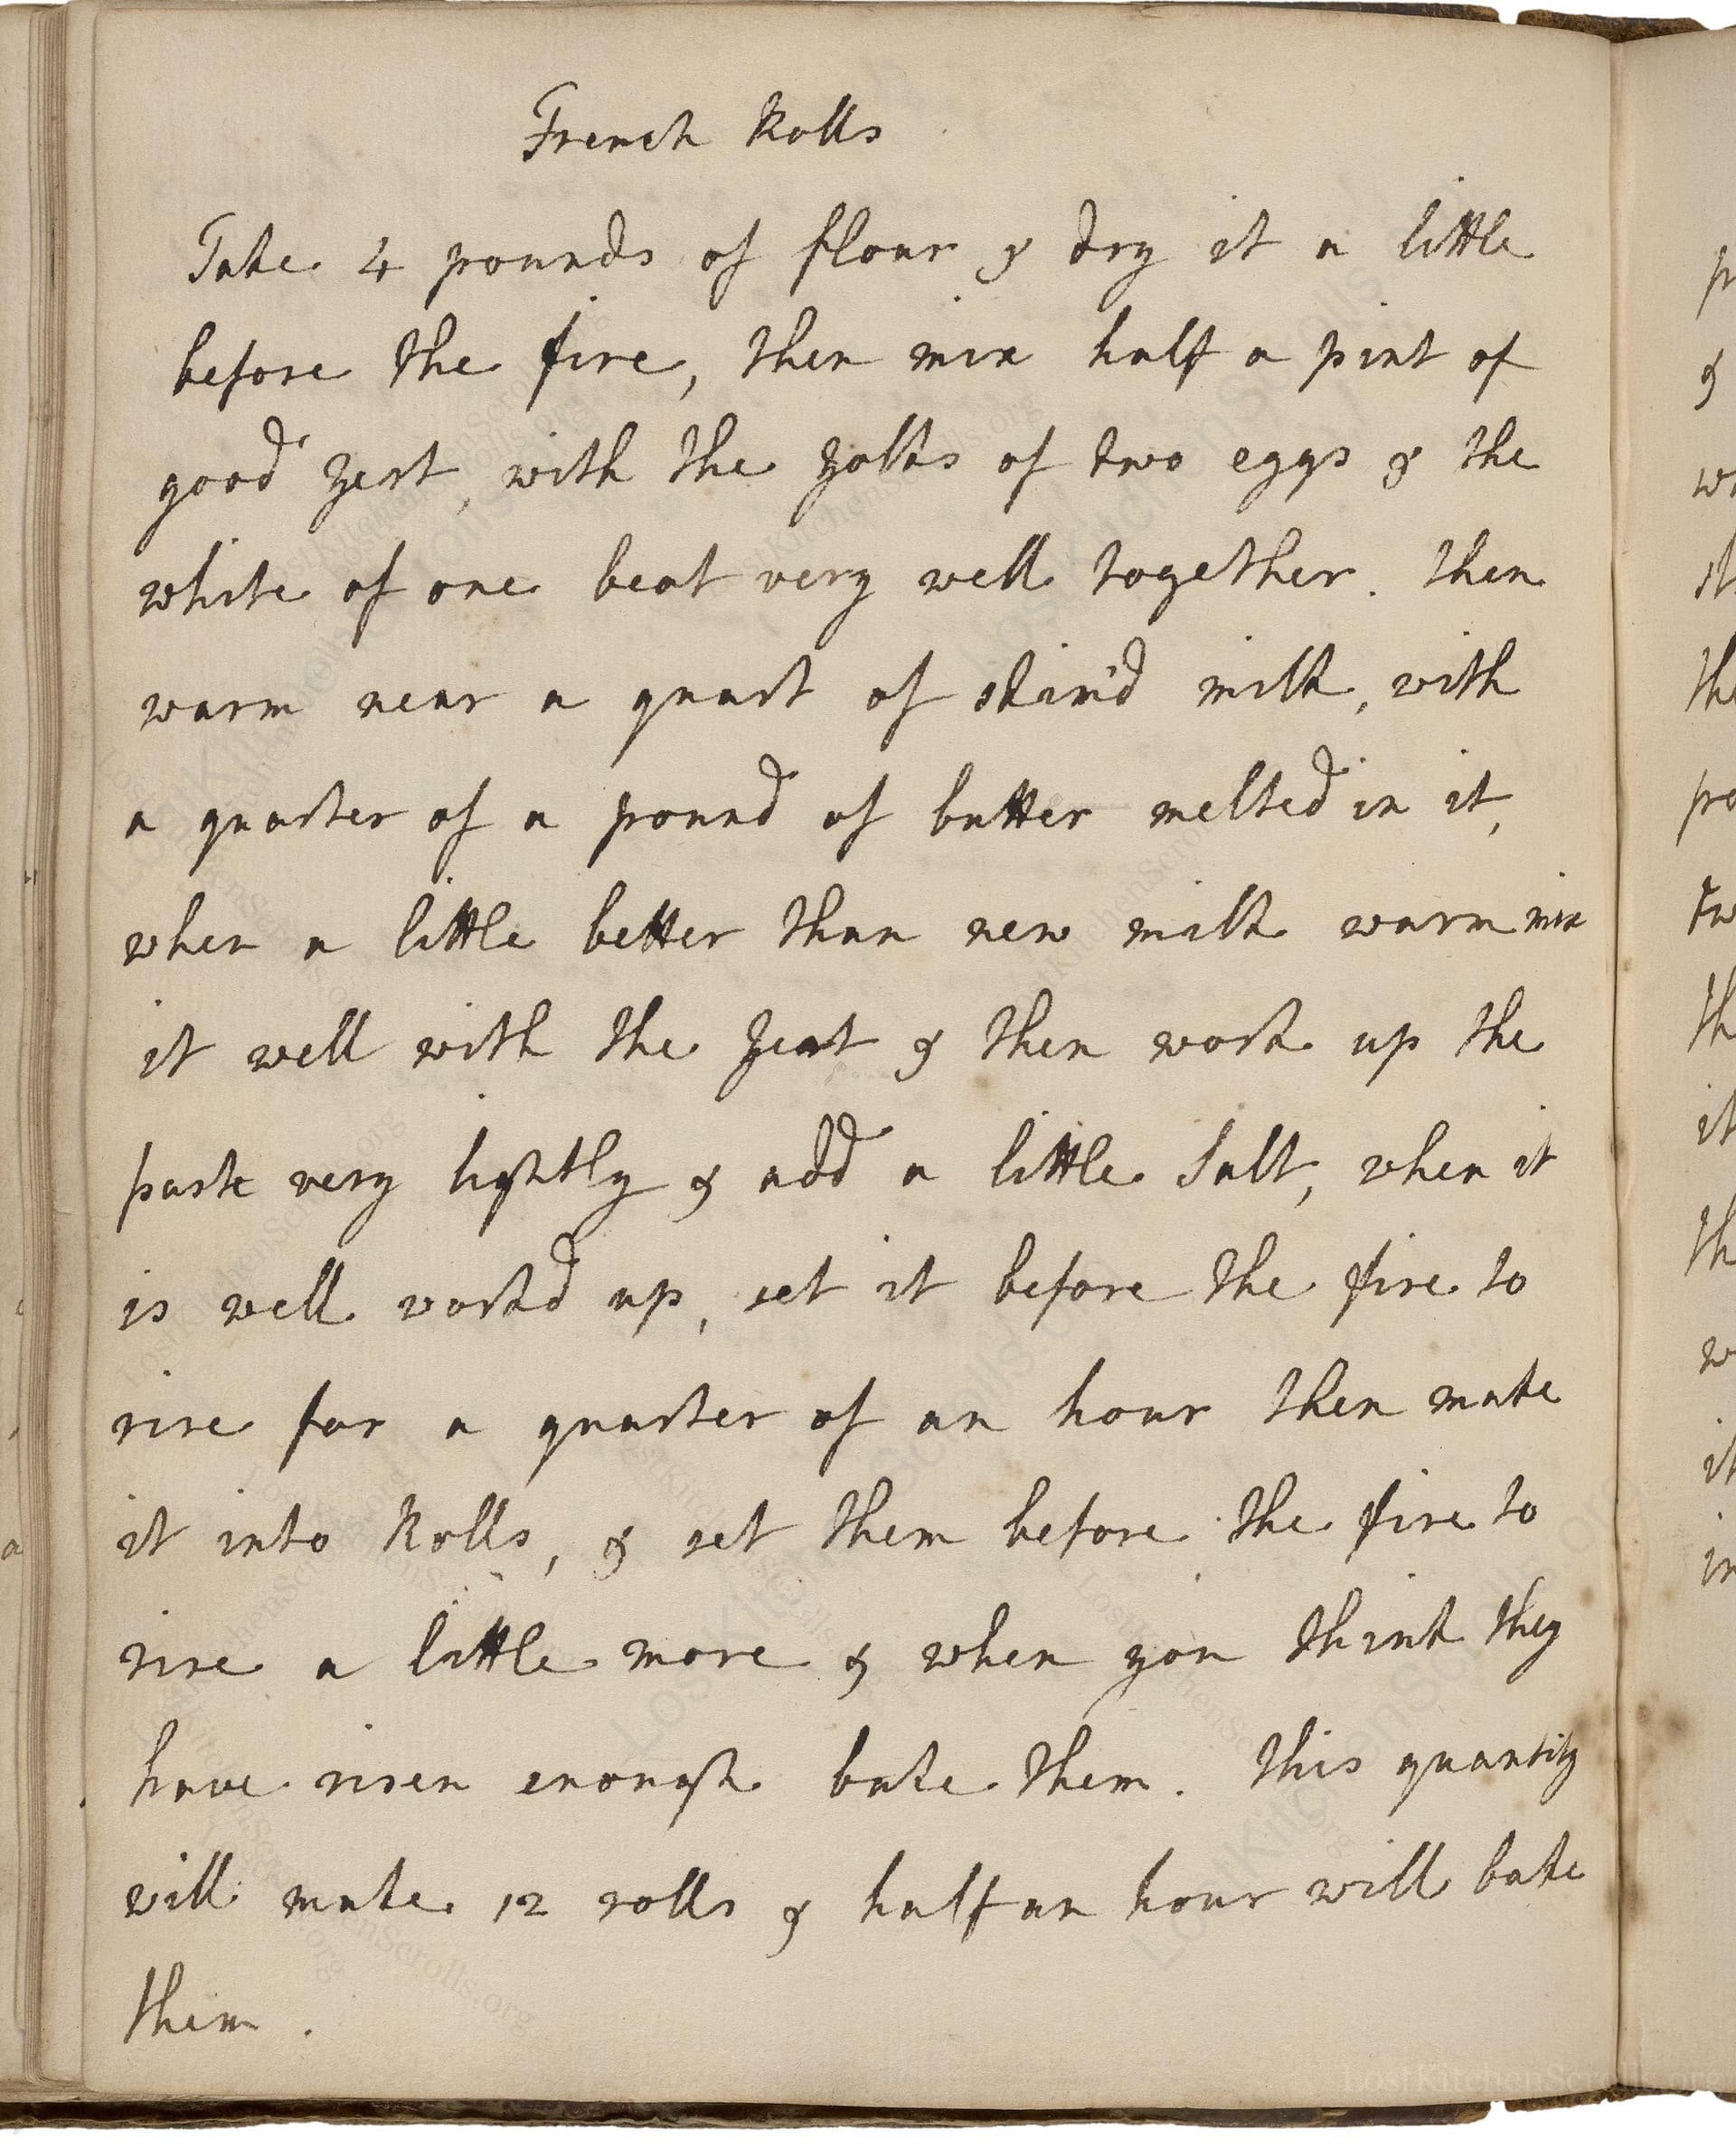 French Rolls
Take 4 pounds of flour & dry it a little
before the fire, then mix half a pint of
good yest, with the yolks of two eggs & the
white of one beat very well together. then
warm near a quart of skim'd milk, with
a quarter of a pound of butter melted in it,
when a little better than new milk warm mix
it well with the yeast & then work up the
paste very lightly & add a little Salt, when it
is well work'd up, set it before the fire to
rise for a quarter of an hour then make
it into Rolls, & set them before the fire to
rise a little more & when you think they
have risen enough bake them. this quantity
will make 12 rolls & half an hour will bake
them.
LostKitchenScrolls.org